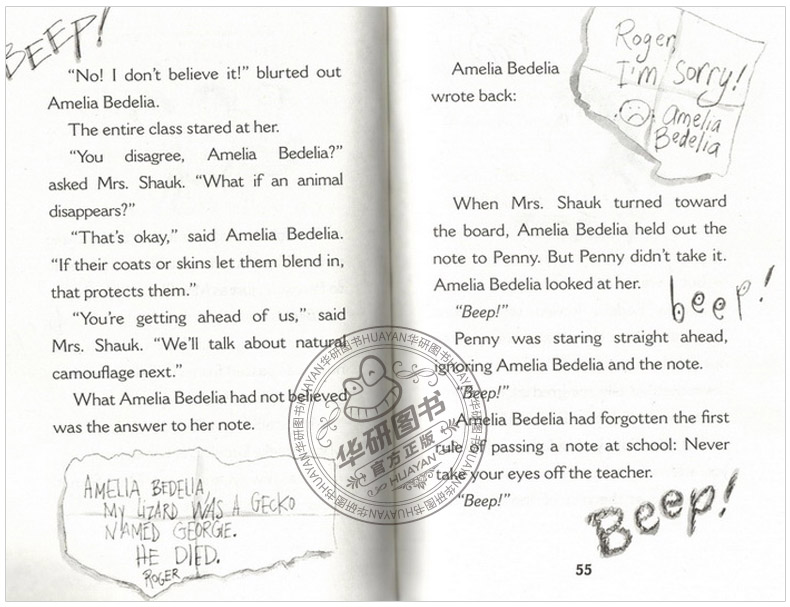 BEEP!
“No! I don’t believe it!” blurted out
Amelia Bedelia.
The entire class stared at her.
“You disagree, Amelia Bedelia?”
asked Mrs. Shauk. “What if an animal
disappears?”
“That’s okay,” said Amelia Bedelia.
“If their coats or skins let them blend in,
that protects them.”
“You’re getting ahead of us,” said
Mrs. Shauk. “We’ll talk about natural
camouflage next.”
What Amelia Bedelia had not believed
was the answer to her note.
AMELIA BEDELIA,
MY LIZARD WAS A GECKO
NAMED GEORGIE.
HE DIED.
ROGER
Roger,
I'm sorry!
Amelia
Bedelia
Amelia Bedelia
wrote back:
When Mrs. Shauk turned toward
the board, Amelia Bedelia held out the
note to Penny. But Penny didn’t take it.
Amelia Bedelia looked at her.
beep!
“Beep!”
Penny was staring straight ahead,
ignoring Amelia Bedelia and the note.
“Beep!”
Amelia Bedelia had forgotten the first
rule of passing a note at school: Never
take your eyes off the teacher.
“Beep!”
Beep!
55
华研图书
官方正版
HUAYAN